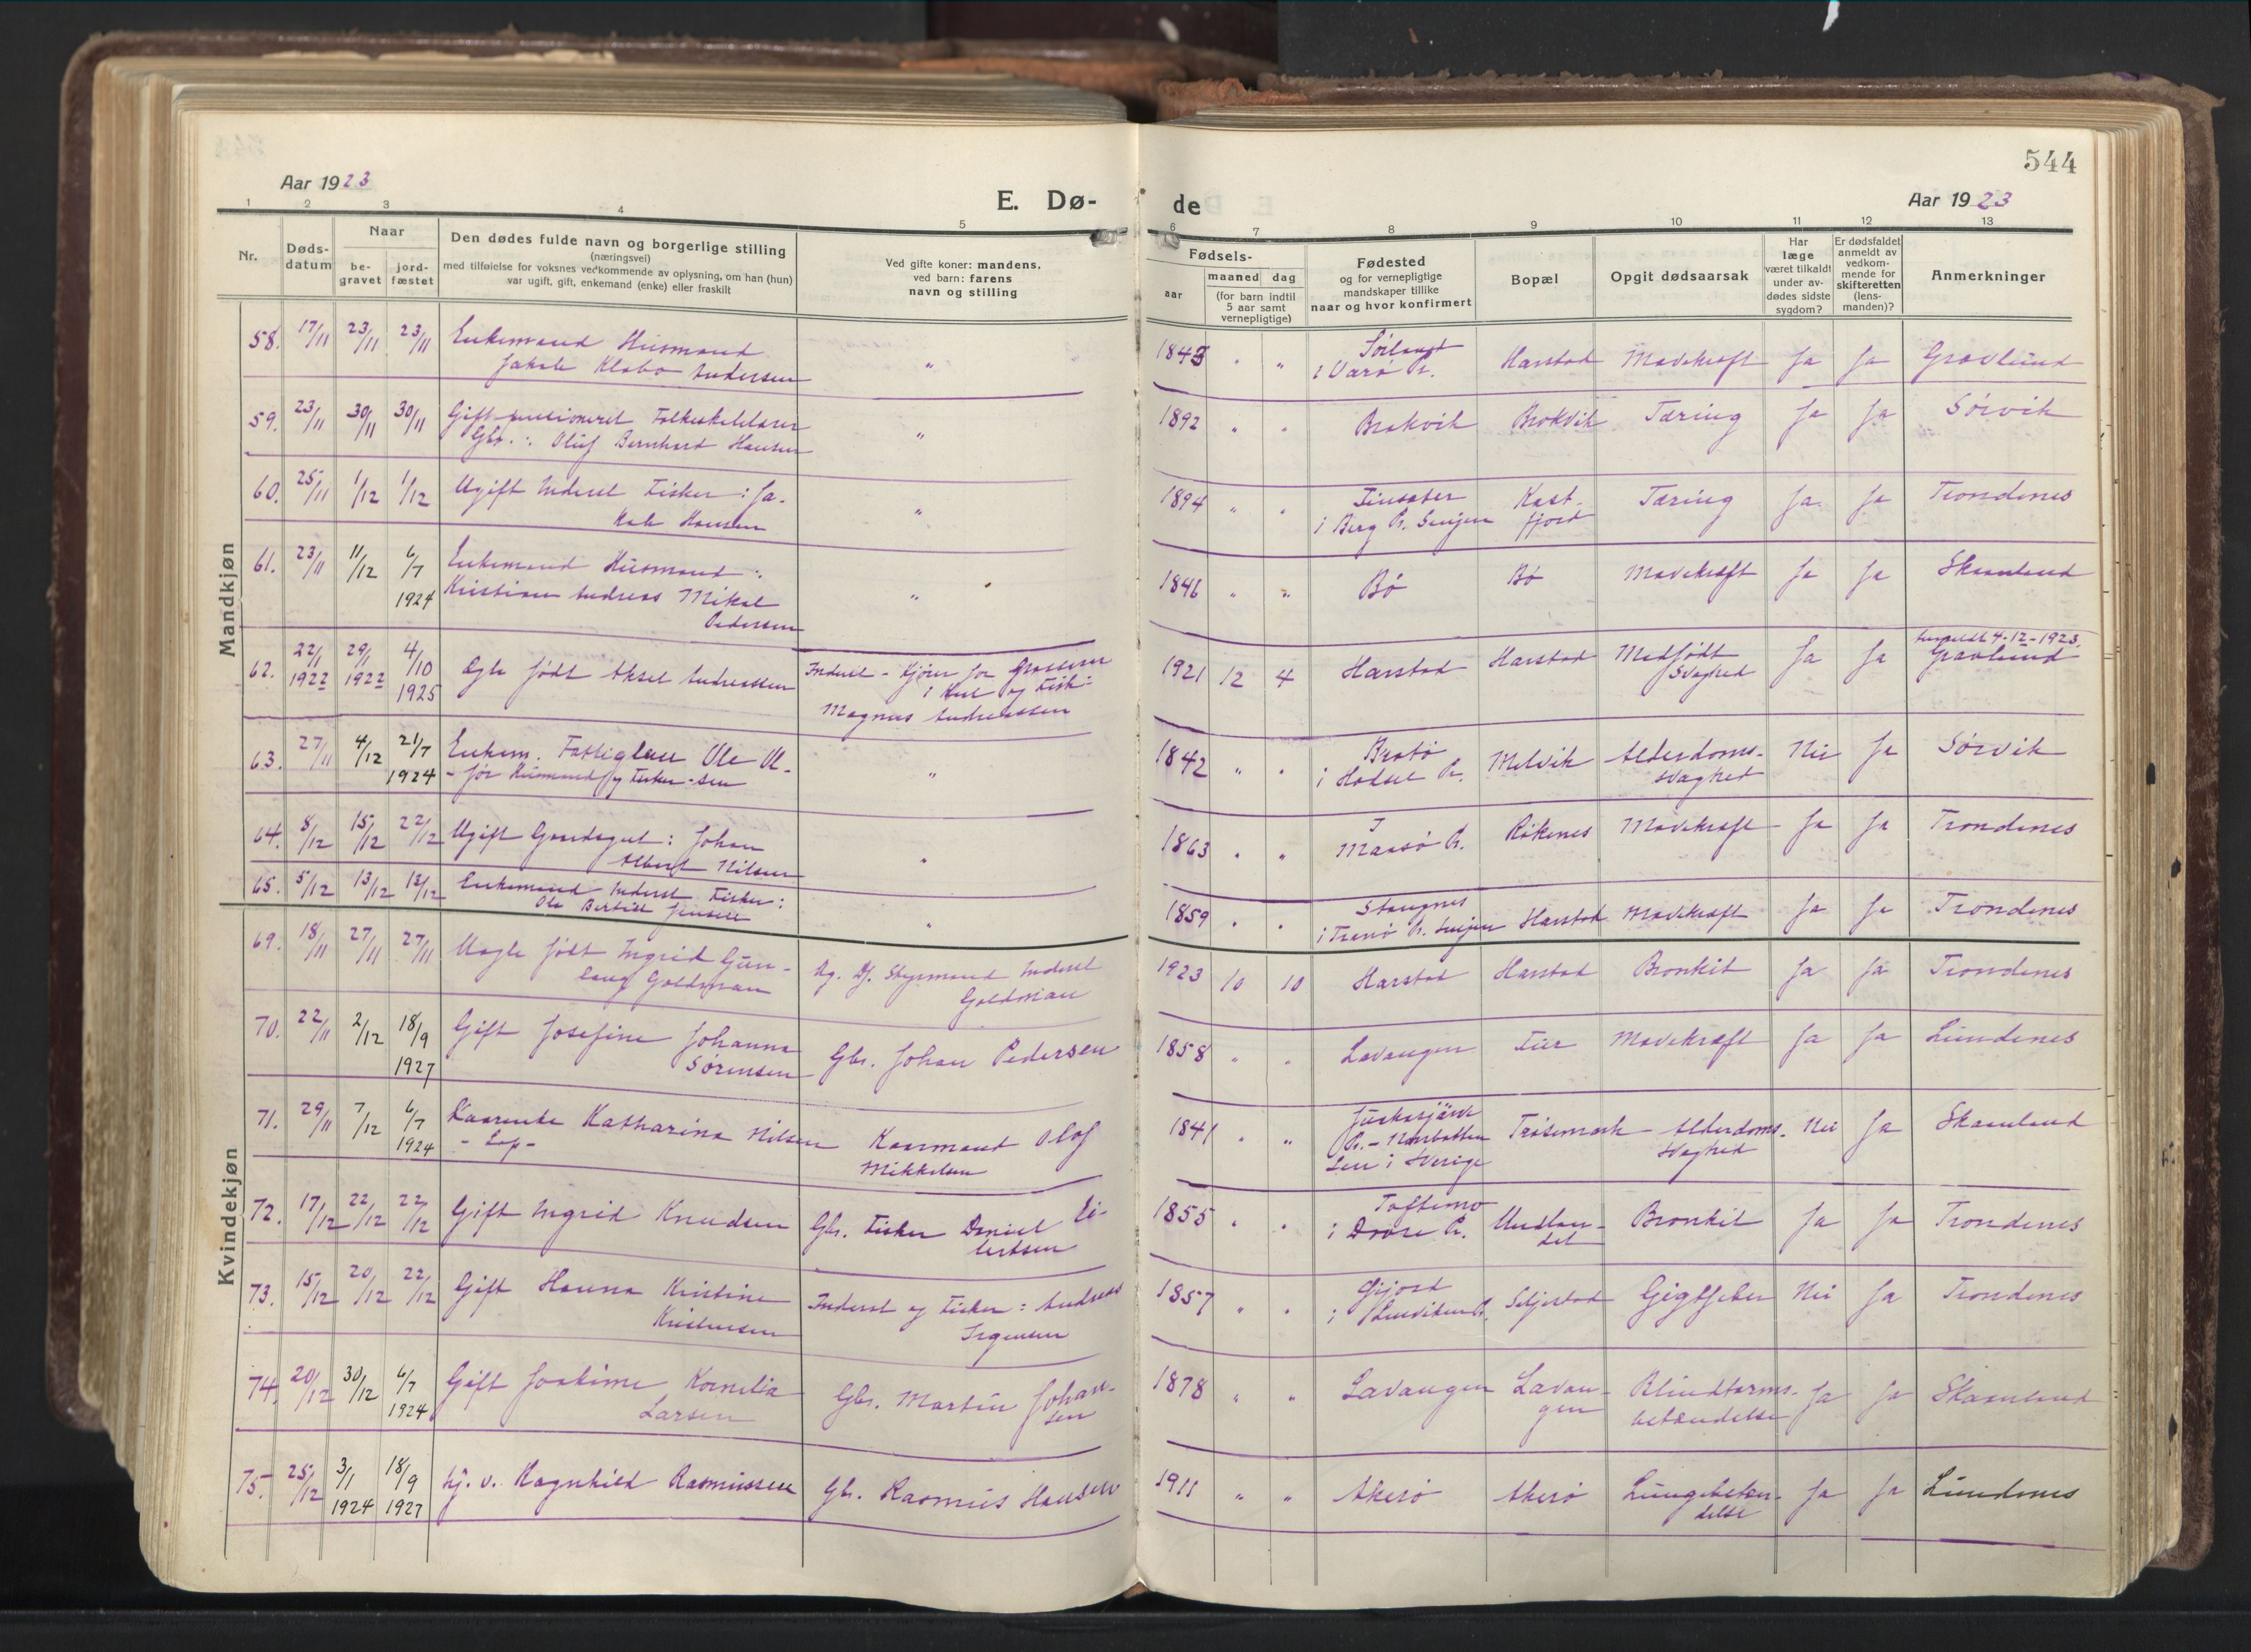 544
Aar 1923
E. Dø-
de
Aar 1923
1 2 3 4 5 6 7 8 9 10 11 12 13
Nr.
Døds-
datum
Naar
be-
gravet
jord-
fæstet
Den dødes fulde navn og borgerlige stilling
(næringsvei)
med tilføielse for voksnes vedkommende av oplysning, om han (hun)
var ugift, gift, enkemand (enke) eller fraskilt
Ved gifte koner: mandens,
ved barn: farens
navn og stilling
Fødsels-
aar
maaned dag
(for barn indtil
5 aar samt
vernepligtige)
Fødested
og for vernepligtige
mandskaper tillike
naar og hvor konfirmert
Bopæl
Opgit dødsaarsak
Har
læge
været tilkaldt
under av-
dødes sidste
sygdom?
Er dødsfaldet
anmeldt av
vedkom-
mende for
skifteretten
(lens-
manden)?
Anmerkninger
Mandkjøn
58. 17/11 23/11 23/11 Enkemand Husmand
Jakob Klabo Andersen
" 1843 " " Sørland
i Værø Pr. Harstad Mavekræft Ja Ja Gravlund
59. 23/11 30/11 30/11 Gift pensioneret Folkeskolelærer
Gbr.: Oluf Bernhard Hansen
" 1892 " " Brokvik Brokvik Tæring Ja Ja Sørvik
60. 25/11 1/12 1/12 Ugift Inderst Fisker: Ja-
kob Hansen
" 1894 " " Finsæter
i Berg Pr. Senjen Kast-
fjord Tæring Ja Ja Trondenes
61. 23/11 11/12 6/7
1924 Enkemand Husmand:
Kristian Andreas Mikal
Pedersen
" 1846 " " Bø Bø Mavekræft Ja Ja Skaanland
62. 22/1
1922 29/1
1922 4/10
1925 Ægte født Aksel Andreassen
Inderst - Kjører for Grosserer
i Kul og Fisk:
Magnus Andreassen
1921 12 4 Harstad Harstad Medfødt
Svaghed Ja Ja anmeldt 4-12-1923.
Gravlund
63. 27/11 4/12 21/7
1924 Enkem. Fattiglem Ole Ol-
- før Husmand og Fisker - sen
" 1842 " " Bratø
i Hadsel Pr. Melvik Alderdoms-
svaghed Nei Ja Sørvik
64. 8/12 15/12 22/12 Ugift Gaardsgut: Johan
Albert Nilsen
" 1863 " " I
Maasø Pr. Røkenes Mavekræft Ja Ja Trondenes
65. 5/12 13/12 13/12 Enkemand Inderst Fisker:
Ole Bertin Jensen
" 1859 " " Stangnes
i Tranø Pr. Senjen Harstad Mavekræft Ja Ja Trondenes
Kvindekjøn
69. 18/11 27/11 27/11 Uægte født Ingrid Gun-
laug Goldman
Ug. Dj. Styrmand Inderst
Goldman
1923 10 10 Harstad Harstad Bronkit Ja Ja Trondenes
70. 22/11 2/12 18/9
1927 Gift Josefine Johanna
Sørensen
Gbr. Johan Pedersen
1858 " " Lavangen Mavekræft Ja Ja Lundenes
71. 29/11 7/12 6/7
1924 Kaarenke Katharina Nilsen
- Lap -
Kaarmand Olof
Mikkelsen
1841 " " Jukkasjärvi
Pr. - Norrbotten
Len i Sverige Trøsemark Alderdoms-
svaghed Nei Ja Skaanland
72. 17/12 22/12 22/12 Gift Ingrid Knudsen
Gbr. Fisker Daniel Ei-
lertsen
1855 " " Toftemo
i Dovre Pr. Undlan-
det Bronkit Ja Ja Trondenes
73. 15/12 20/12 22/12 Gift Hanna Kristine
Kristensen
Inderst og Fisker: Andreas
Ingensen
1857 " " Gifjord
i Lenviken Pr. Seljestad Gigtfeber Nei Ja Trondenes
74. 20/12 30/12 6/7
1924 Gift Joakime Kornelia
Larsen
Gbr. Martin Johan-
sen
1878 " " Lavangen Lavan-
gen Blindtarms-
betændelse Ja Ja Skaanland
75. 25/12 3/1
1924 18/9
1927 hj. v. Ragnhild Rasmussen
Gbr. Rasmus Hansen
1911 " " Akerø Akerø Lungebetæn-
delse Ja Ja Lundenes